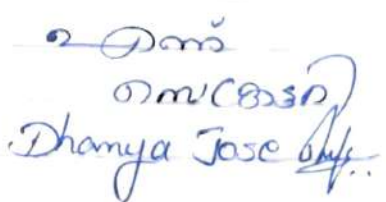 എന്ന്
സെക്രട്ടറി
Dhanya Jose